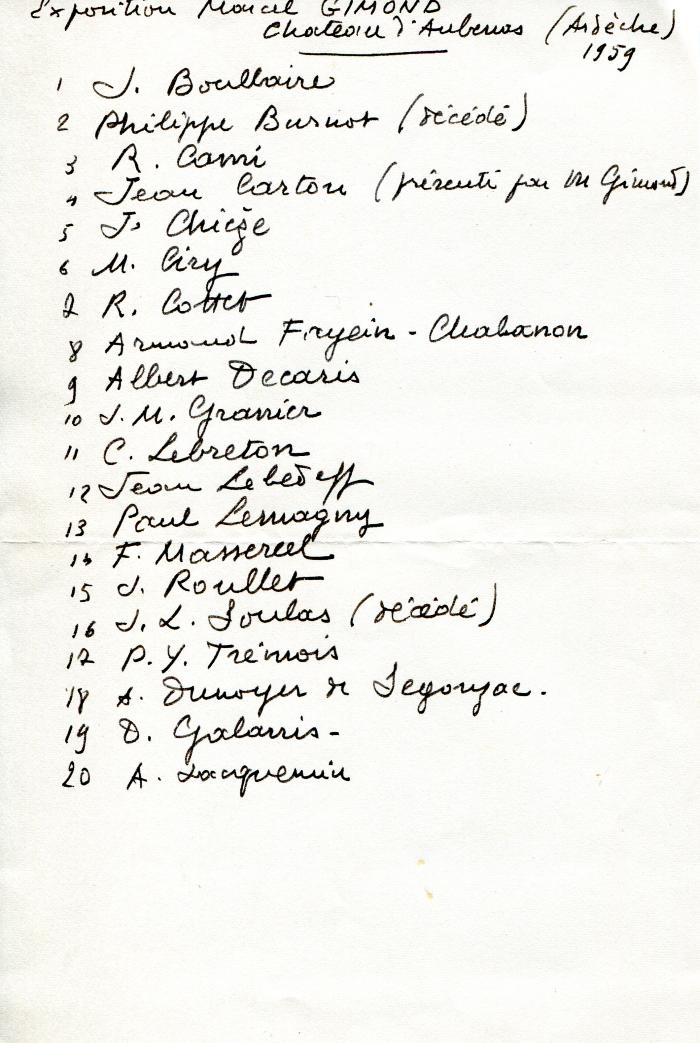 Exposition Marcel GIMOND
Chateau d'Aubenas (Ardèche)
1959
1 J. Boullaire
2 Philippe Burnot (décédé)
3 R. Cami
4 Jean Carton (présenté par M Gimond)
5 J. Chièze
6 M. Ciry
7 R. Cottet
8 Armand Fryein - Chabanon
9 Albert Decaris
10 J. M. Granier
11 C. Lebreton
12 Jean Lebedeff
13 Paul Lemagny
14 F. Massereel
15 J. Roullet
16 J. L. Soulas (décédé)
17 P. Y. Trémois
18 A. Dunoyer de Segonzac.
19 D. Galanis -
20 A. Jacquemin